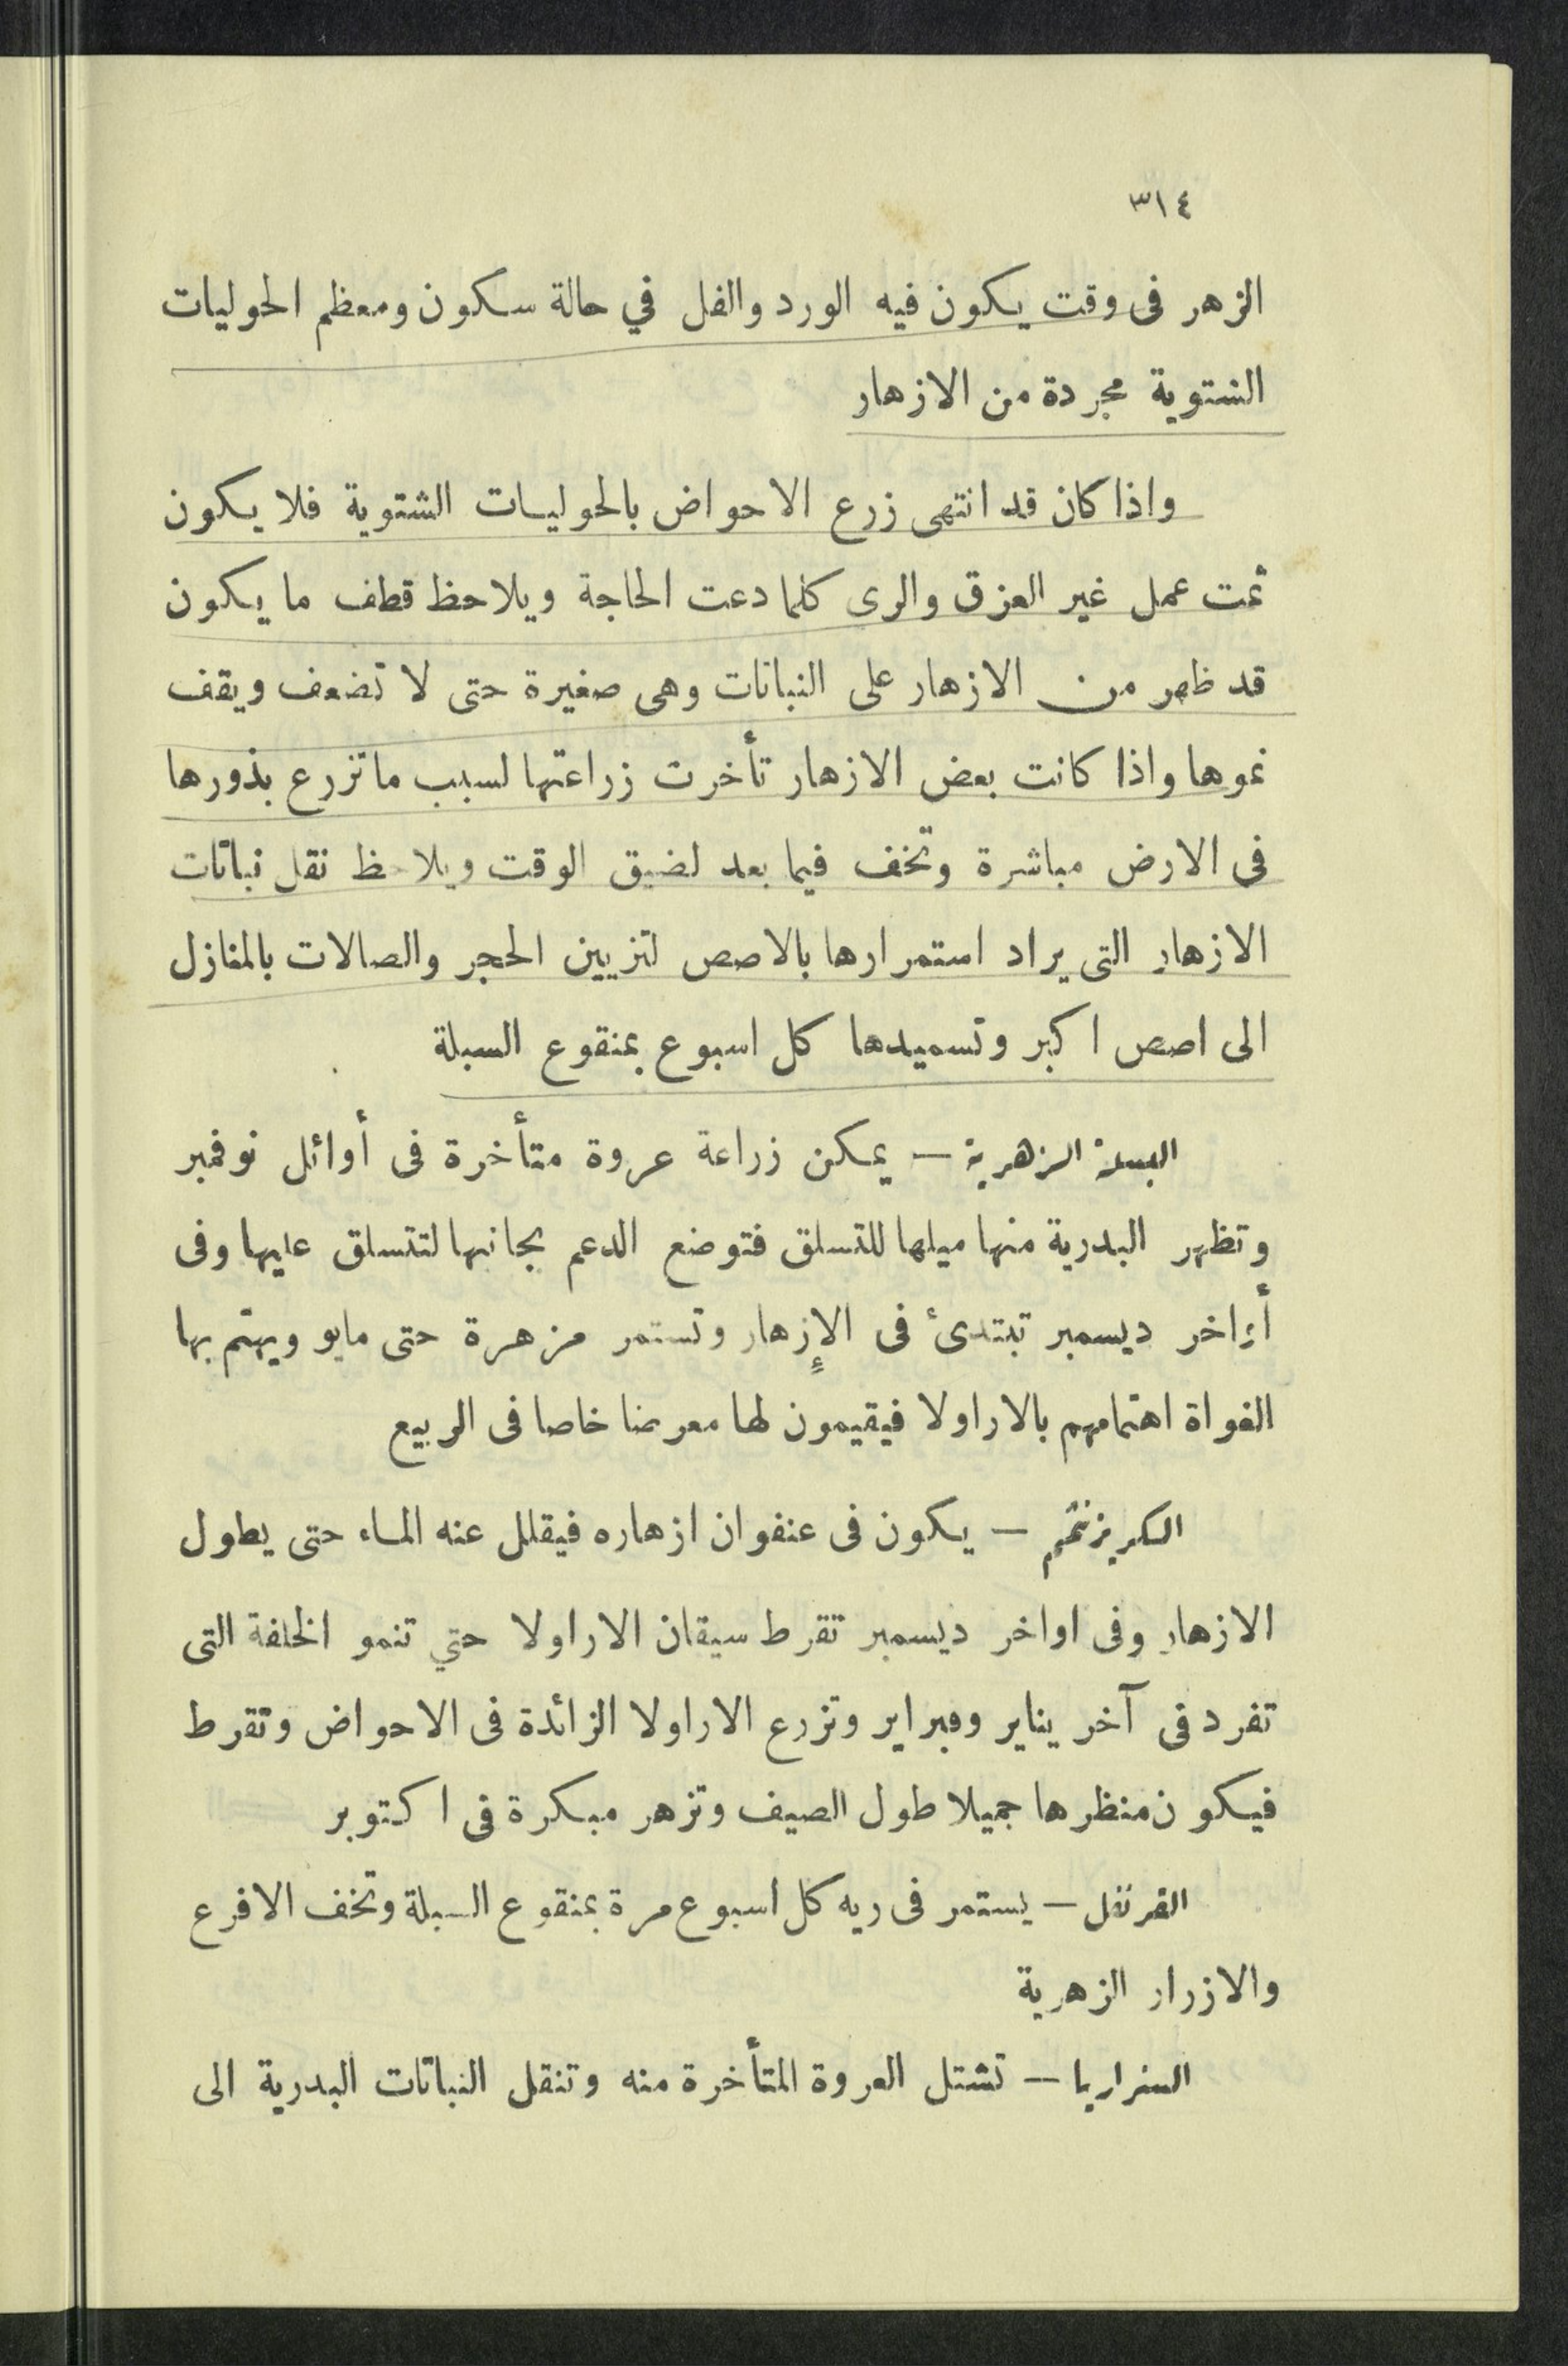 ٣١٤
الزهر فى وقت يكون فيه الورد والفل في حالة سكون ومعظم الحوليات
الشتوية مجردة من الازهار
واذا كان قد انتهى زرع الاحواض بالحوليات الشتوية فلا يكون
ثمت عمل غير العزق والرى كلما دعت الحاجة ويلاحظ قطف ما يكون
قد ظهر من الازهار على النباتات وهى صغيرة حتى لا تضعف ويقف
نموها واذا كانت بعض الازهار تأخرت زراعتها لسبب ما تزرع بذورها
فى الارض مباشرة وتخف فيما بعد لضيق الوقت ويلاحظ نقل نباتات
الازهار التى يراد استمرارها بالاصص لتزيين الحجر والصالات بالمنازل
الى اصص اكبر وتسميدها كل اسبوع بمنقوع السبلة
البسلة الزهرية — يمكن زراعة عروة متأخرة فى أوائل نوفمبر
وتظهر البدرية منها ميلها للتسلق فتوضع الدعم بجانبها لتتسلق عليها وفى
أواخر ديسمبر تبتدئ فى الإزهار وتستمر مزهرة حتى مايو ويهتم بها
الغواة اهتمامهم بالاراولا فيقيمون لها معرضا خاصا فى الربيع
الكريزنثم — يكون فى عنفوان ازهاره فيقلل عنه الماء حتى يطول
الازهار وفى اواخر ديسمبر تقرط سيقان الاراولا حتي تنمو الخلفة التى
تفرد فى آخر يناير وفبراير وتزرع الاراولا الزائدة فى الاحواض وتقرط
فيكون منظرها جميلا طول الصيف وتزهر مبكرة فى اكتوبر
القرنفل — يستمر فى ريه كل اسبوع مرة بمنقوع السبلة وتخف الافرع
والازرار الزهرية
السنراريا — تشتل العروة المتأخرة منه وتنقل النباتات البدرية الى